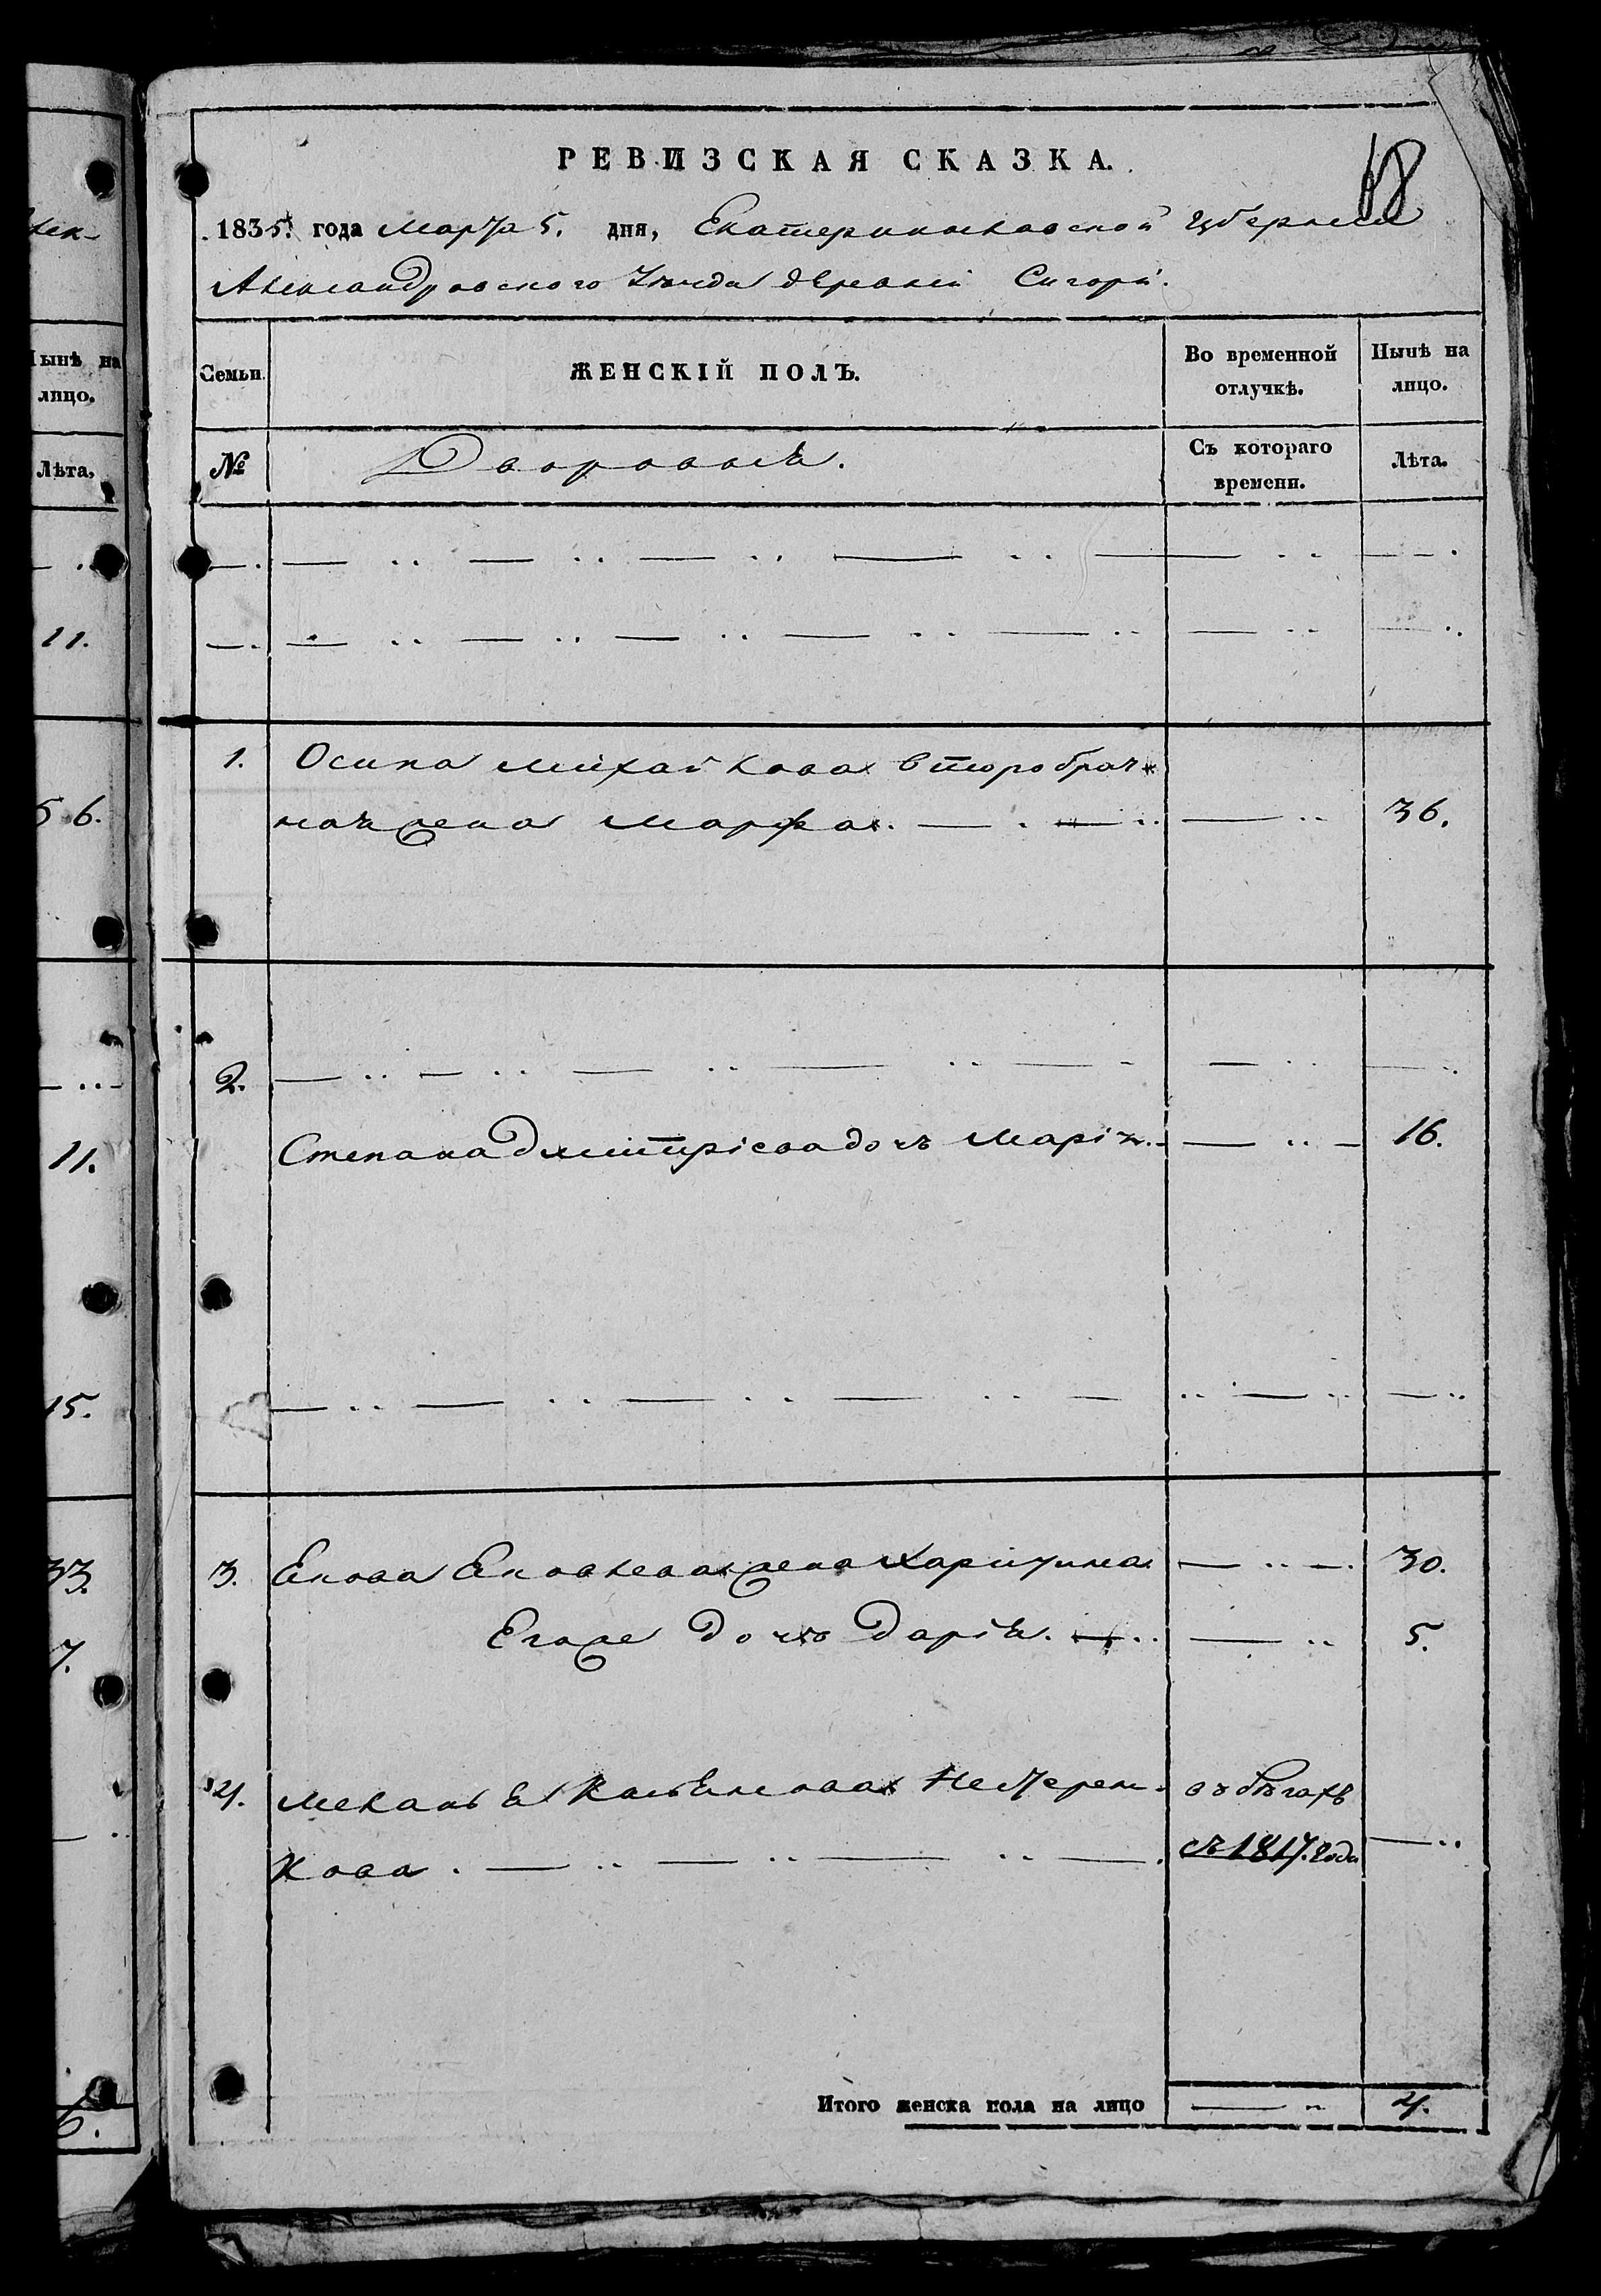 18
РЕВИЗСКАЯ СКАЗКА.
1835. года Марта 5. дня, Екатеринославской губернии
Александровского Уезда деревни Сигори.
Семьи.
ЖЕНСКІЙ ПОЛЪ.
Во временной отлучкѣ.
Нынѣ на лицо.
№
Дворовыя.
Съ котораго времени.
Лѣта.
1. Осипа Михайлова второбрач-
ная жена Марфа. 36.
2.
Степана Дмитріева дочь Марія. 16.
3. Екова Ековлева жена Харитина 30.
Егоже дочь Дарія. 5.
4. въ бѣгахъ
кова. съ 1817. года
Итого женска пола на лицо 4.
Нынѣ на
лицо.
Лѣта.
11.
56.
11.
15.
33.
7.
6.